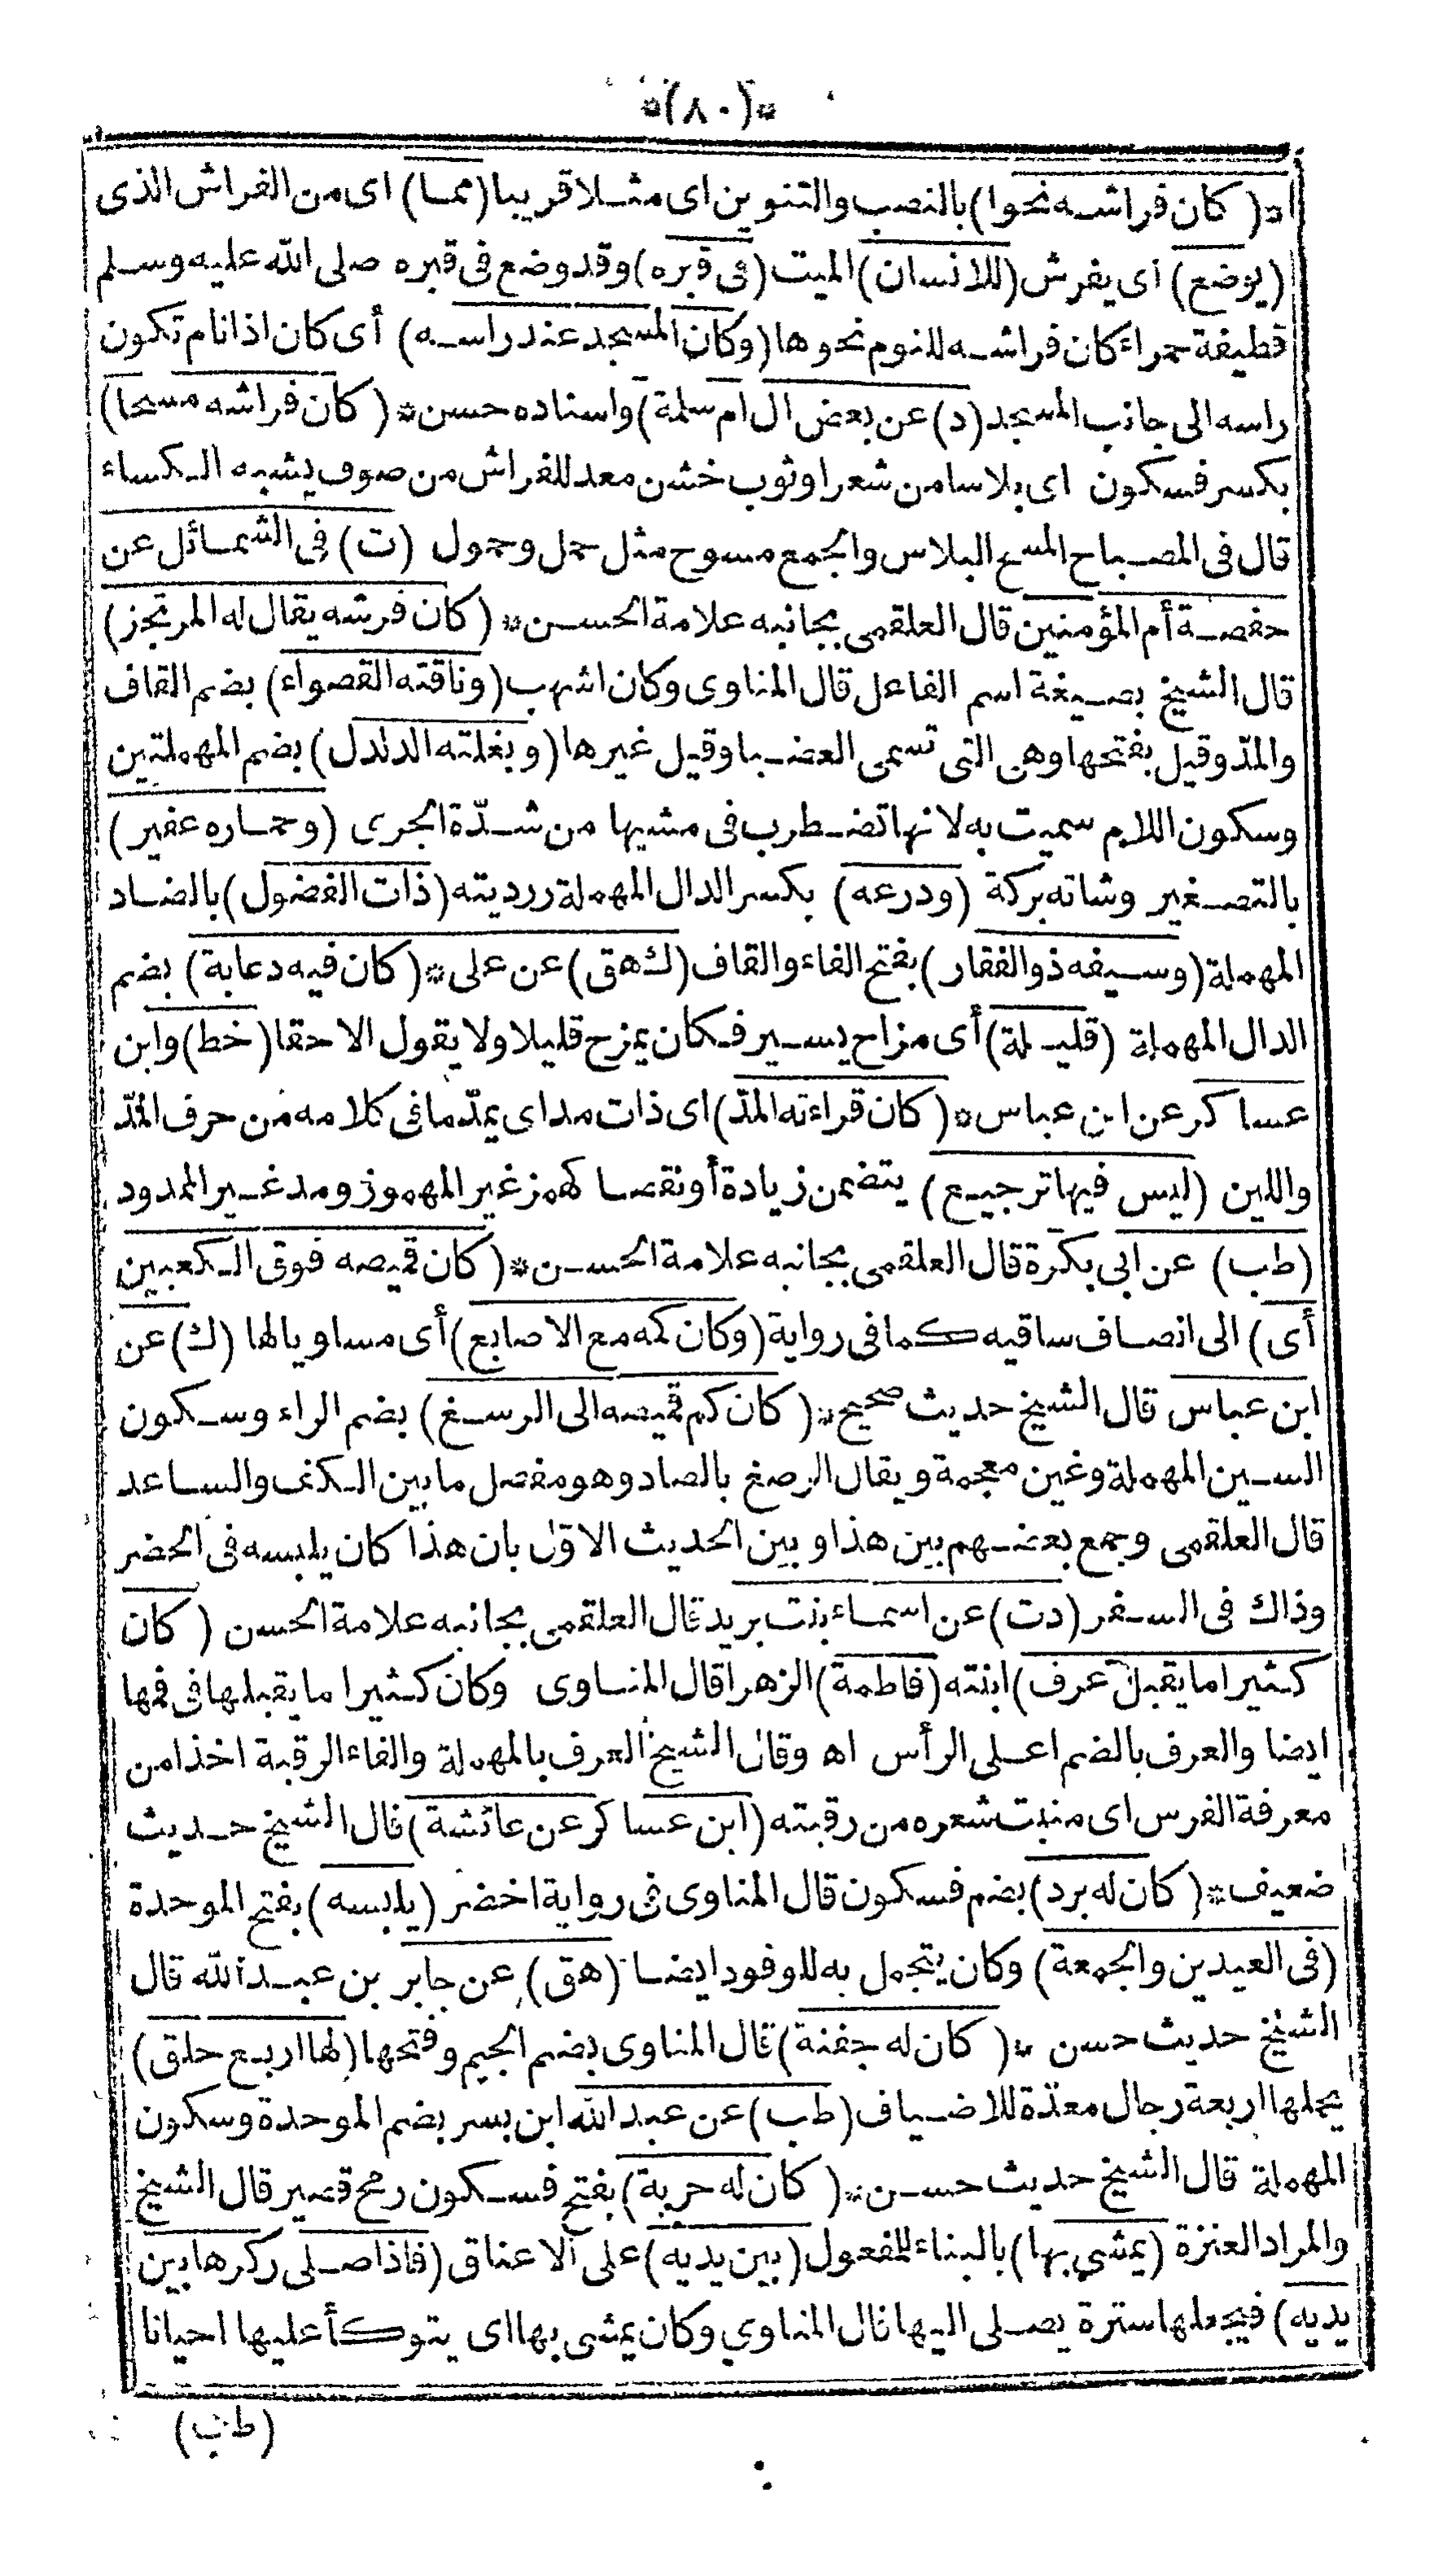 *(٨٠)*
*(كان فراشه نحوا) بالنصب والتنوين اى مثلا قريبا (مما) اى من الفراش الذى
(يوضع) اى يفرش (للانسان) الميت (فى قبره) وقد وضع فى قبره صلى الله عليه وسلم
قطيفة حمراء كان فراشه للنوم نحوها (وكان المسجد عند راسه) أى كان اذا نام تكون
راسه الى جانب المسجد (د) عن بعض ال ام سلمة) واسناده حسن* (كان فراشه مسحا)
بكسر فسكون اى بلاسا من شعر اوثوب خشن معد للفراش من صوف يشبه الكساء
قال فى المصباح المسح البلاس والجمع مسوح مثل حمل وحمول (ت) فى الشمائل عن
حفصة أم المؤمنين قال العلقمى بجانبه علامة الحسن* (كان فرشه يقال له المرتجز)
قال الشيخ بصيغة اسم الفاعل قال المناوى وكان اشهب (وناقته القصواء) بضم القاف
والمدّ وقيل بفتحها وهى التى تسمى العضبا وقيل غيرها (وبغلته الدلدل) بضم المهملتين
وسكون اللام سميت به لانها تضطرب فى مشيها من شدّة الجرى (وحماره عفير)
بالتصغير وشاته بركة (ودرعه) بكسر الدال المهملة رديته (ذات الفضول) بالضاد
المهملة (وسيفه ذو الفقار) بفتح الفاء والقاف (ك هق) عن على* (كان فيه دعابة) بضم
الدال المهملة (قليلة) أى مزاح يسير فكان يمزح قليلا ولا يقول الا حقا (خط) وابن
عساكر عن ابن عباس* (كان قراءته المدّ) اى ذات مد اى يمدّ ما فى كلامه من حرف المدّ
واللين (ليس فيها ترجيع) يتضمن زيادة أو نقصا كهمز غير المهموز ومد غير الممدود
(طب) عن ابى بكرة قال العلقمى بجانبه علامة الحسن* (كان قميصه فوق الكعبين
أى) الى انصاف ساقيه كما فى رواية (وكان كمه مع الاصابع) أى مساويا لها (ك) عن
ابن عباس قال الشيخ حديث صحيح* (كان كم قميصه الى الرسغ) بضم الراء وسكون
السين المهملة وغين معجمة ويقال الرصغ بالصاد وهو مفصل ما بين الكف والساعد
قال العلقمى وجمع بعضهم بين هذا وبين الحديث الاوّل بان هذا كان يلبسه فى الحضر
وذاك فى السفر (دت) عن اسماء بنت بريد قال العلقمى بجانبه علامة الحسن (كان
كثيرا ما يقبل عرف) ابنته (فاطمة) الزهرا قال المناوى وكان كثيرا ما يقبلها فى فمها
ايضا والعرف بالضم اعلى الرأس اه وقال الشيخ العرف بالمهملة والفاء الرقبة اخذا من
معرفة الفرس اى منبت شعره من رقبته (ابن عساكر عن عائشة) قال الشيخ حديث
ضعيف* (كان له برد) بضم فسكون قال المناوى فى رواية اخضر (يلبسه) بفتح الموحدة
(فى العيدين والجمعة) وكان يتجمل به للوفود ايضا (هق) عن جابر بن عبد الله قال
الشيخ حديث حسن *(كان له جفنة) قال المناوى بضم الجيم وفتحها (لها اربع حلق)
يحملها اربعة رجال معدّة للاضياف (طب) عن عبد الله ابن بسر بضم الموحدة وسكون
المهملة قال الشيخ حديث حسن* (كان له حربة) بفتح فسكون رمح قصير قال الشيخ
والمراد العنزة (يمشى بها) بالبناء للمفعول (بين يديه) على الاعناق (فاذا صلى ركزها بين
يديه) فيجعلها سترة يصلى اليها قال المناوى وكان يمشى بها اى يتوكأ عليها احيانا
(طب)